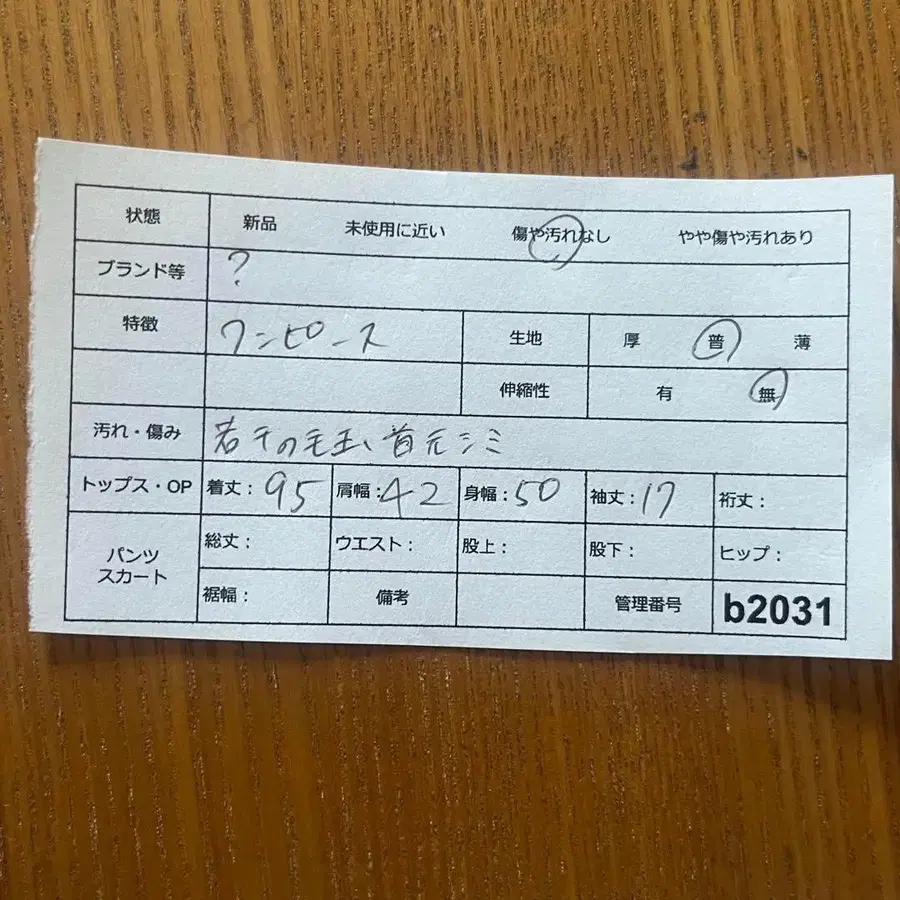 状態 新品 未使用に近い 傷や汚れなし やや傷や汚れあり
ブランド等 ?
特徴 ワンピース 生地 厚 普 薄
伸縮性 有 無
汚れ・傷み 若干の毛玉、首元シミ
トップス・OP 着丈：95 肩幅：42 身幅：50 袖丈：17 裄丈：
パンツ スカート 総丈： ウエスト： 股上： 股下： ヒップ：
裾幅： 備考 管理番号 b2031